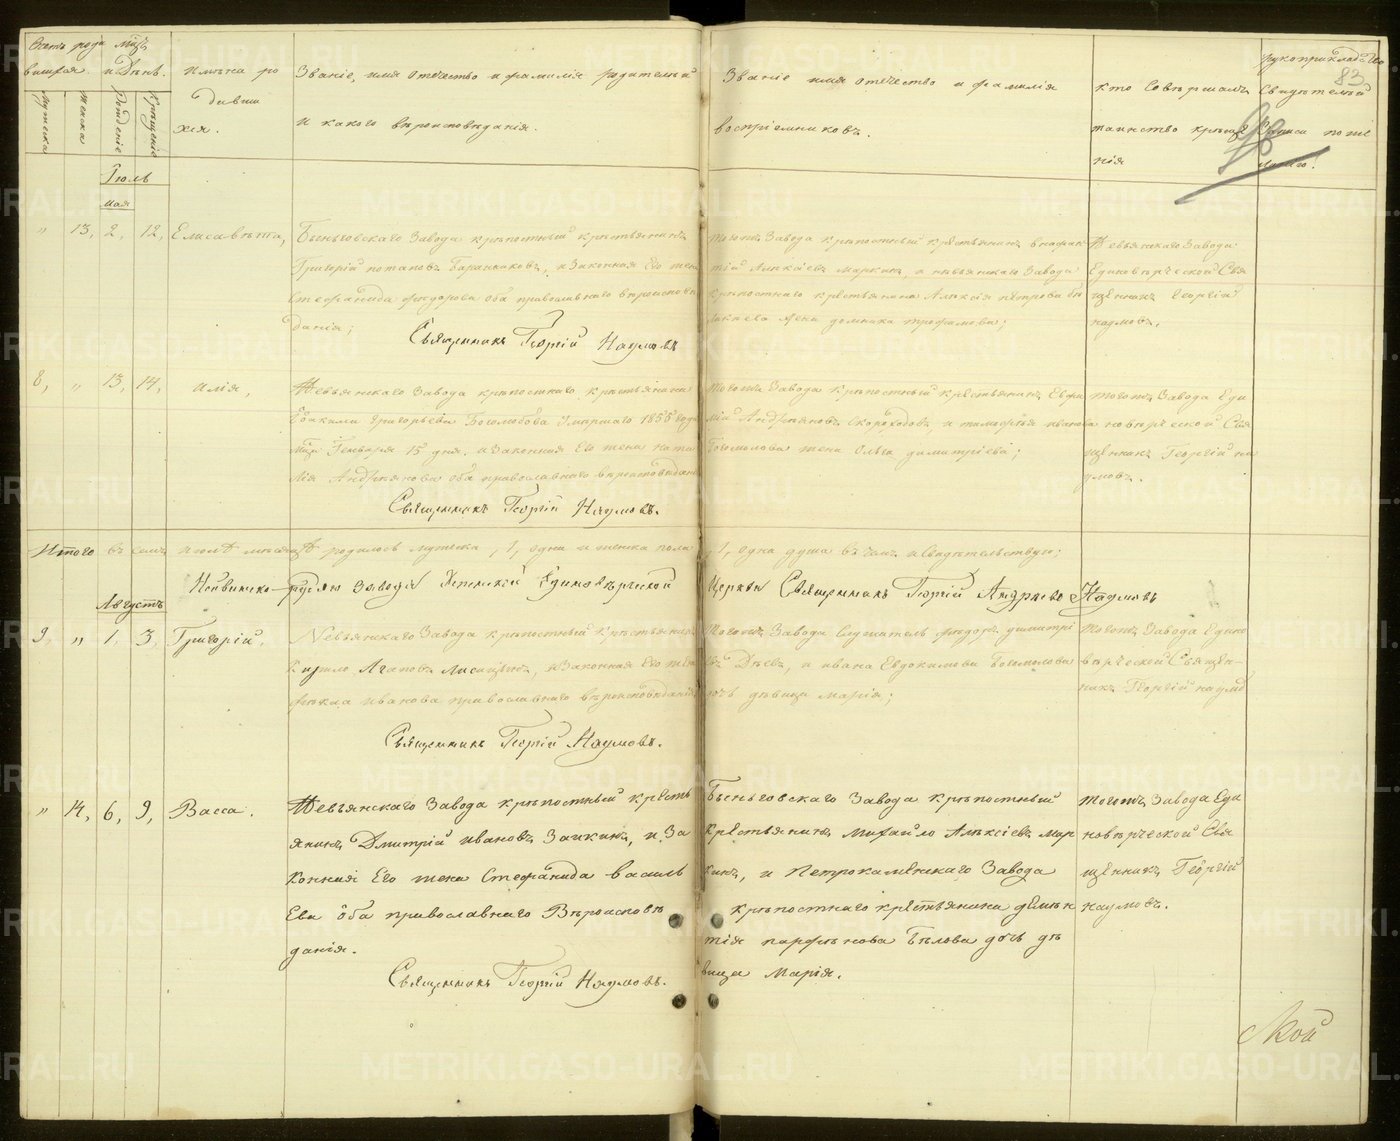 Счетъ рода
вшихся.
Мѣсяцъ
и День.
Имена ро
дивши
хся.
Званіе, имя отечество и фамилія родителей
и какого вѣроисповѣданія.
Званіе имя отечество и фамилія
воспріемниковъ.
кто Совѣршалъ
таинство крѣще
нія
рукоприкладство
Свидѣтелей
Записи по же
ланію.
83
98
мужеска
женска
Рожденіе
Крѣщеніе
Іюль
мая
" 13, 2, 12, Елисавѣта,
Быньговскаго Завода крѣпостный крѣстьянинъ
Григорій потаповъ Баранниковъ, и Законная Его жена
Стефанида федорова оба православнаго вѣроисповѣ
данія;
Священникъ Георгій Наумовъ
тогожъ Завода крѣпостный крѣстьянинъ
Алекѣевъ Маркинъ, и нѣвьянскаго Завода
крѣпостнаго крестьянина Алексія петрова
жена домника трофимова;
Невьянскаго Завода
Единовѣрческой Свя
щенникъ Георгій
наумовъ.
8, " 13, 14, илія,
Невьянскаго Завода крѣпостнаго крѣстьянина
Григорьева Боголюбова Умершаго 1855 года
Генваря 15 дня. и Законная Его жена ната
лія Андрѣянова оба православнаго вѣроисповѣданія
Священникъ Георгій Наумовъ.
тогожъ Завода крѣпостный крѣстьянинъ Евфи
мій Андрѣяновъ Скороходовъ, и тимофѣя иванова
Богомолова жена Ольга димитріева;
тогожъ Завода Еди
новѣрческой Свя
щенникъ Георгій на
умовъ.
Итого въ семъ июлѣ мѣсяцѣ родилось мужеска, 1, одна и женска пола, 1, одна душа въ чемъ и Свидѣтельствую;
Нейвинско-рудян завода Успенской Единовѣрческой Церкви Священникъ Георгій Андреевъ Наумовъ
Августъ
9, " 1, 3, Григорій.
Невьянскаго Завода крѣпостный крѣстьянинъ
Кирило Агаповъ Лисицынъ, и Законная Его жена
фекла иванова православнаго вѣроисповѣданія
Священникъ Георгій Наумовъ.
тогожъ Завода Служитель федоръ димитрі
евъ Дѣевъ, и ивана Евдокимова Богомолова
дочь дѣвица марія;
тогожъ Завода Едино
вѣрческой Священ-
никъ Георгій наумов
" 14, 6, 9, Васса.
Невьянскаго Завода крѣпостный крѣсть
янинъ Дмитрій ивановъ Заикинъ, и За
конная Его жена Стефанида василь
Ева оба православнаго Вѣроисповѣ
данія.
Священникъ Георгій Наумовъ.
Быньговскаго Завода крѣпостный
крѣстьянинъ михайло Алексіевъ Мар
кинъ, и Петрокаменскаго Завода
крѣпостнаго крѣстьянина дѣмен
тія парфенова Бѣлова дочь дѣ
вица Марія.
тогожъ Завода Еди
новѣрческой Свя
щенникъ Георгій
наумовъ.
METRIKI.GASO-URAL.RU